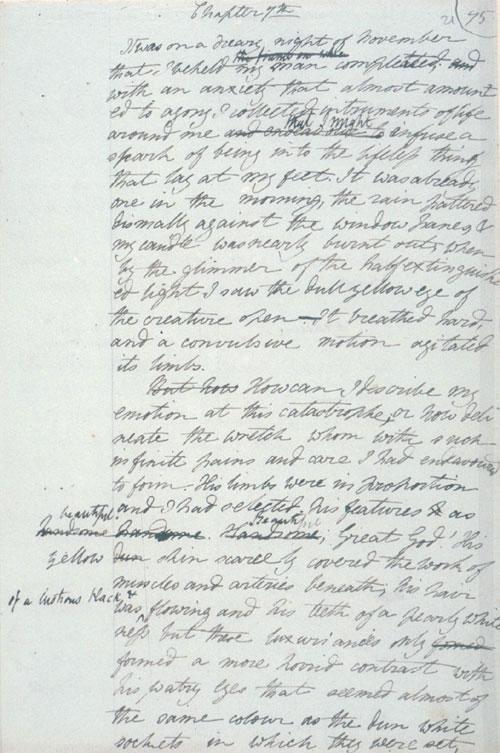 Chapter 7th
21 95
It was on a dreary night of November
the frame on whic
that I beheld my man compleated; and
with an anxiety that almost amount
ed to agony, I collected instruments of life
that I might
around me and endeavour to infuse a
spark of being into the lifeless thing
that lay at my feet. It was already
one in the morning, the rain pattered
dismally against the window panes, &
my candle was nearly burnt out, when
by the glimmer of the half extinguish
ed light I saw the dull yellow eye of
the creature open. It breathed hard,
and a convulsive motion agitated
its limbs.
But how How can I describe my
emotion at this catastrophe; or how deli
neate the wretch whom with such
infinite pains and care I had endeavoured
to form. His limbs were in proportion
and I had selected his features as
beautiful.
handsome handsome. Handsome, Beautiful; Great God! His
yellow dun skin scarcely covered the work of
muscles and arteries beneath; his hair
of a lustrous black, &
was flowing and his teeth of a pearly white
ness but these luxuriances only formed
formed a more horrid contrast with
his watry eyes that seemed almost of
the same colour as the dun white
sockets in which they were set